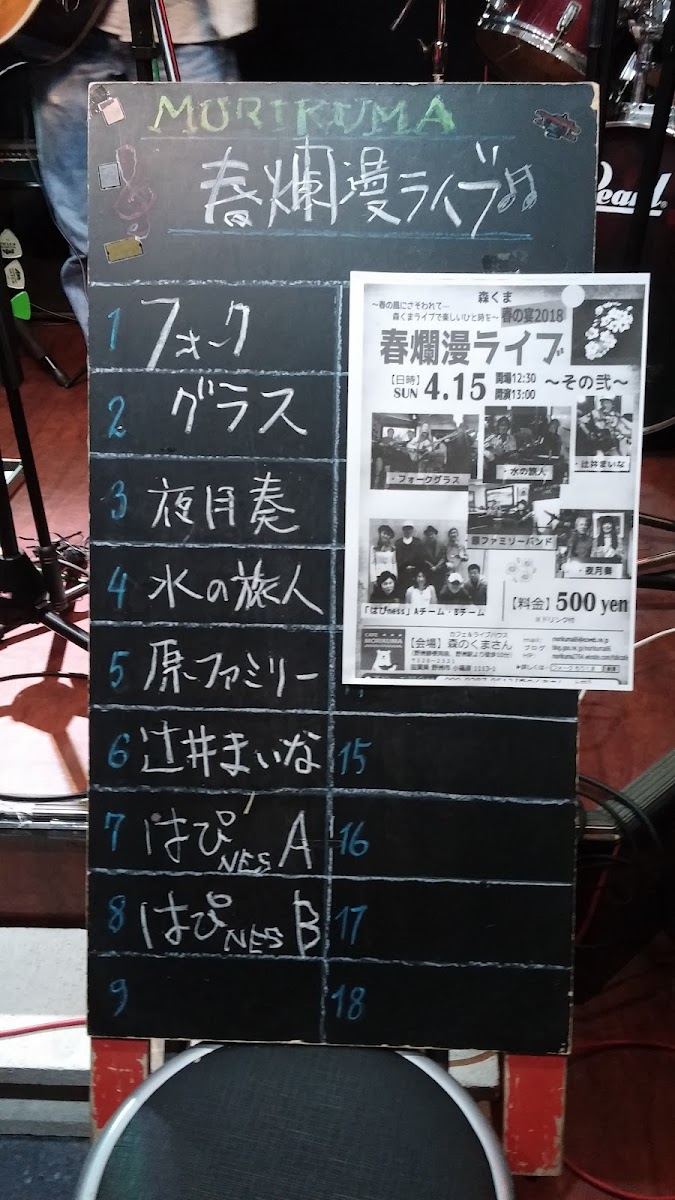 MORIKUMA
春爛漫ライブ♫
1 フォーク
2 グラス
3 夜月奏
4 水の旅人
5 原ファミリー
6 辻井まいな
7 はぴNES A
8 はぴNES B
9
15
16
17
18
森くま
～春の風にさそわれて…
森くまライブで楽しいひと時を～
春の宴2018
春爛漫ライブ
【日時】
SUN 4.15
開場12:30
開演13:00
～その弐～
・フォークグラス
・水の旅人
・辻井まいな
原ファミリーバンド
・夜月奏
「はぴness」Aチーム・Bチーム
【料金】 500 yen
※ドリンク付
CAFE
MORIKUMA
カフェ&ライブハウス
【会場】 森のくまさん
Pearl